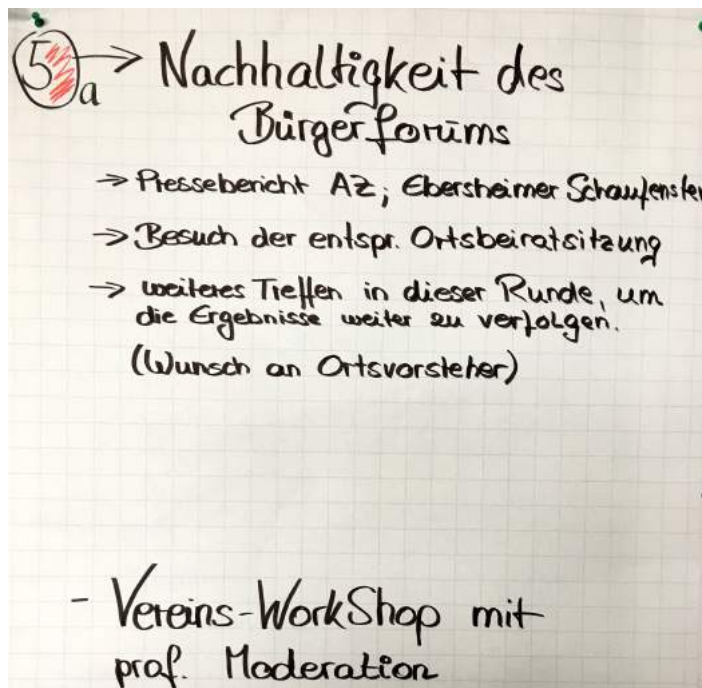 5a → Nachhaltigkeit des
Bürgerforums
→ Pressebericht AZ; Ebersheimer Schaufenster
→ Besuch der entspr. Ortsbeiratsitzung
→ weiteres Treffen in dieser Runde, um
die Ergebnisse weiter zu verfolgen.
(Wunsch an Ortsvorsteher)
- Vereins-WorkShop mit
prof. Moderation